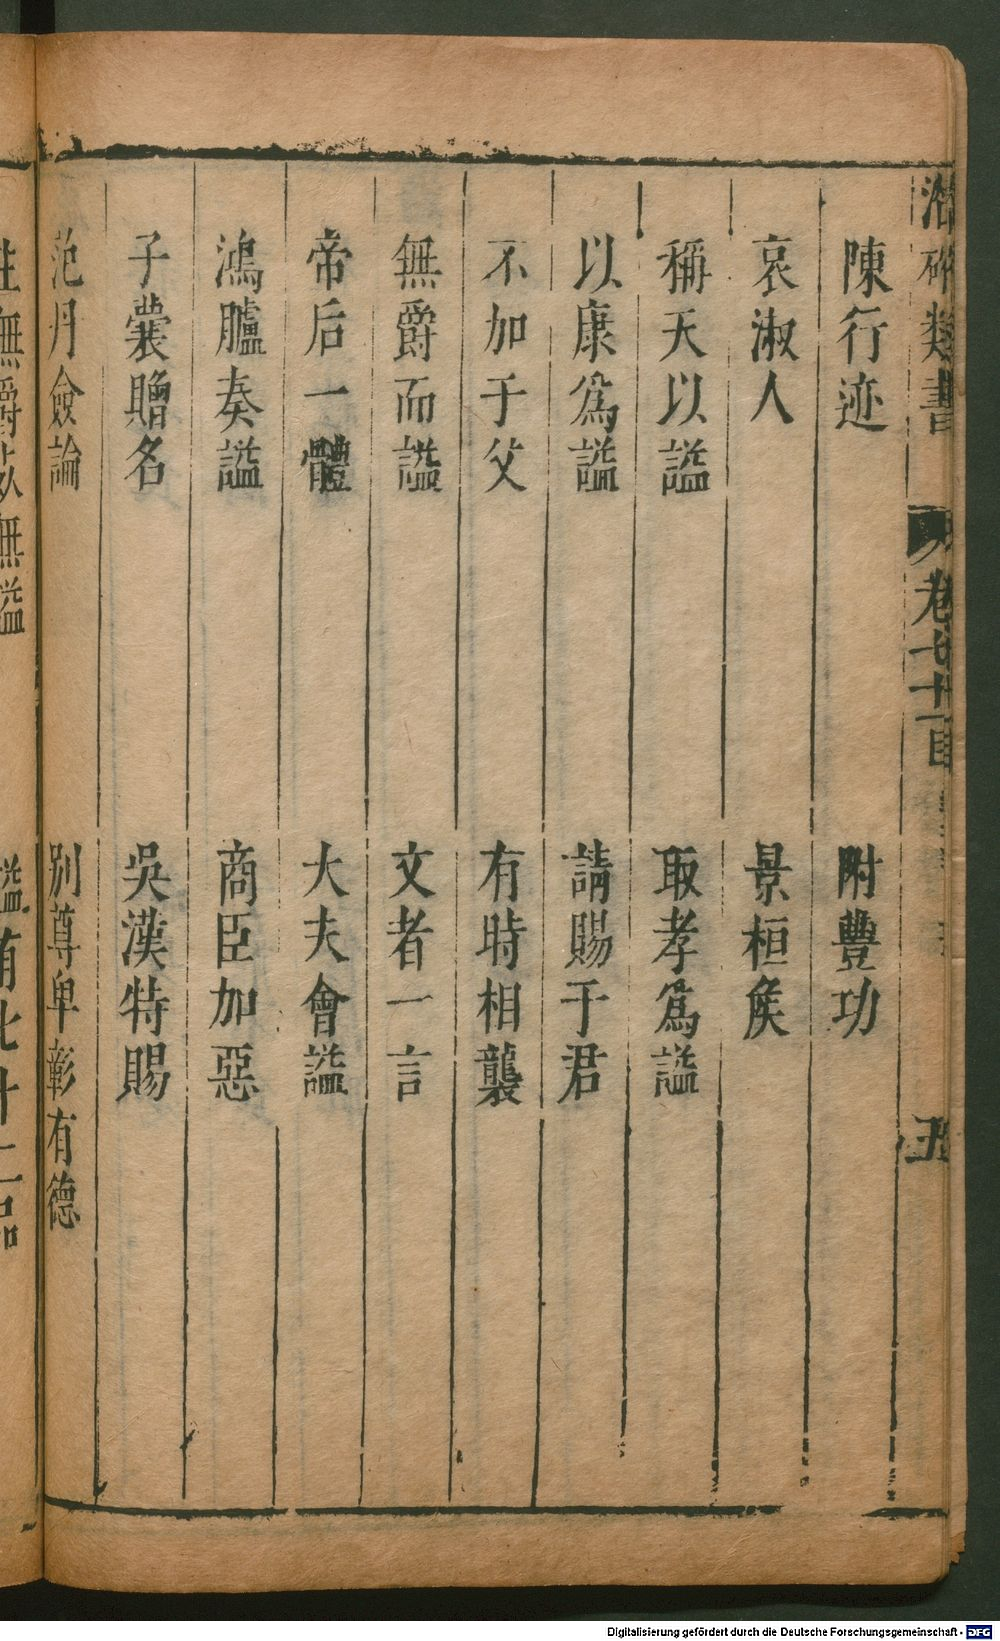 類書 卷七十一目 五
陳行迹 附豐功
哀淑人 景桓侯
稱天以謚 取孝爲謚
以康爲謚 請賜于君
不加于父 有時相襲
無爵而謚 文者一言
帝后一體 大夫會謚
鴻臚奏謚 商臣加惡
子囊贈名 吳漢特賜
范丹僉論 別尊卑彰有德
無爵 無謚
Digitalisierung gefördert durch die Deutsche Forschungsgemeinschaft - DFG